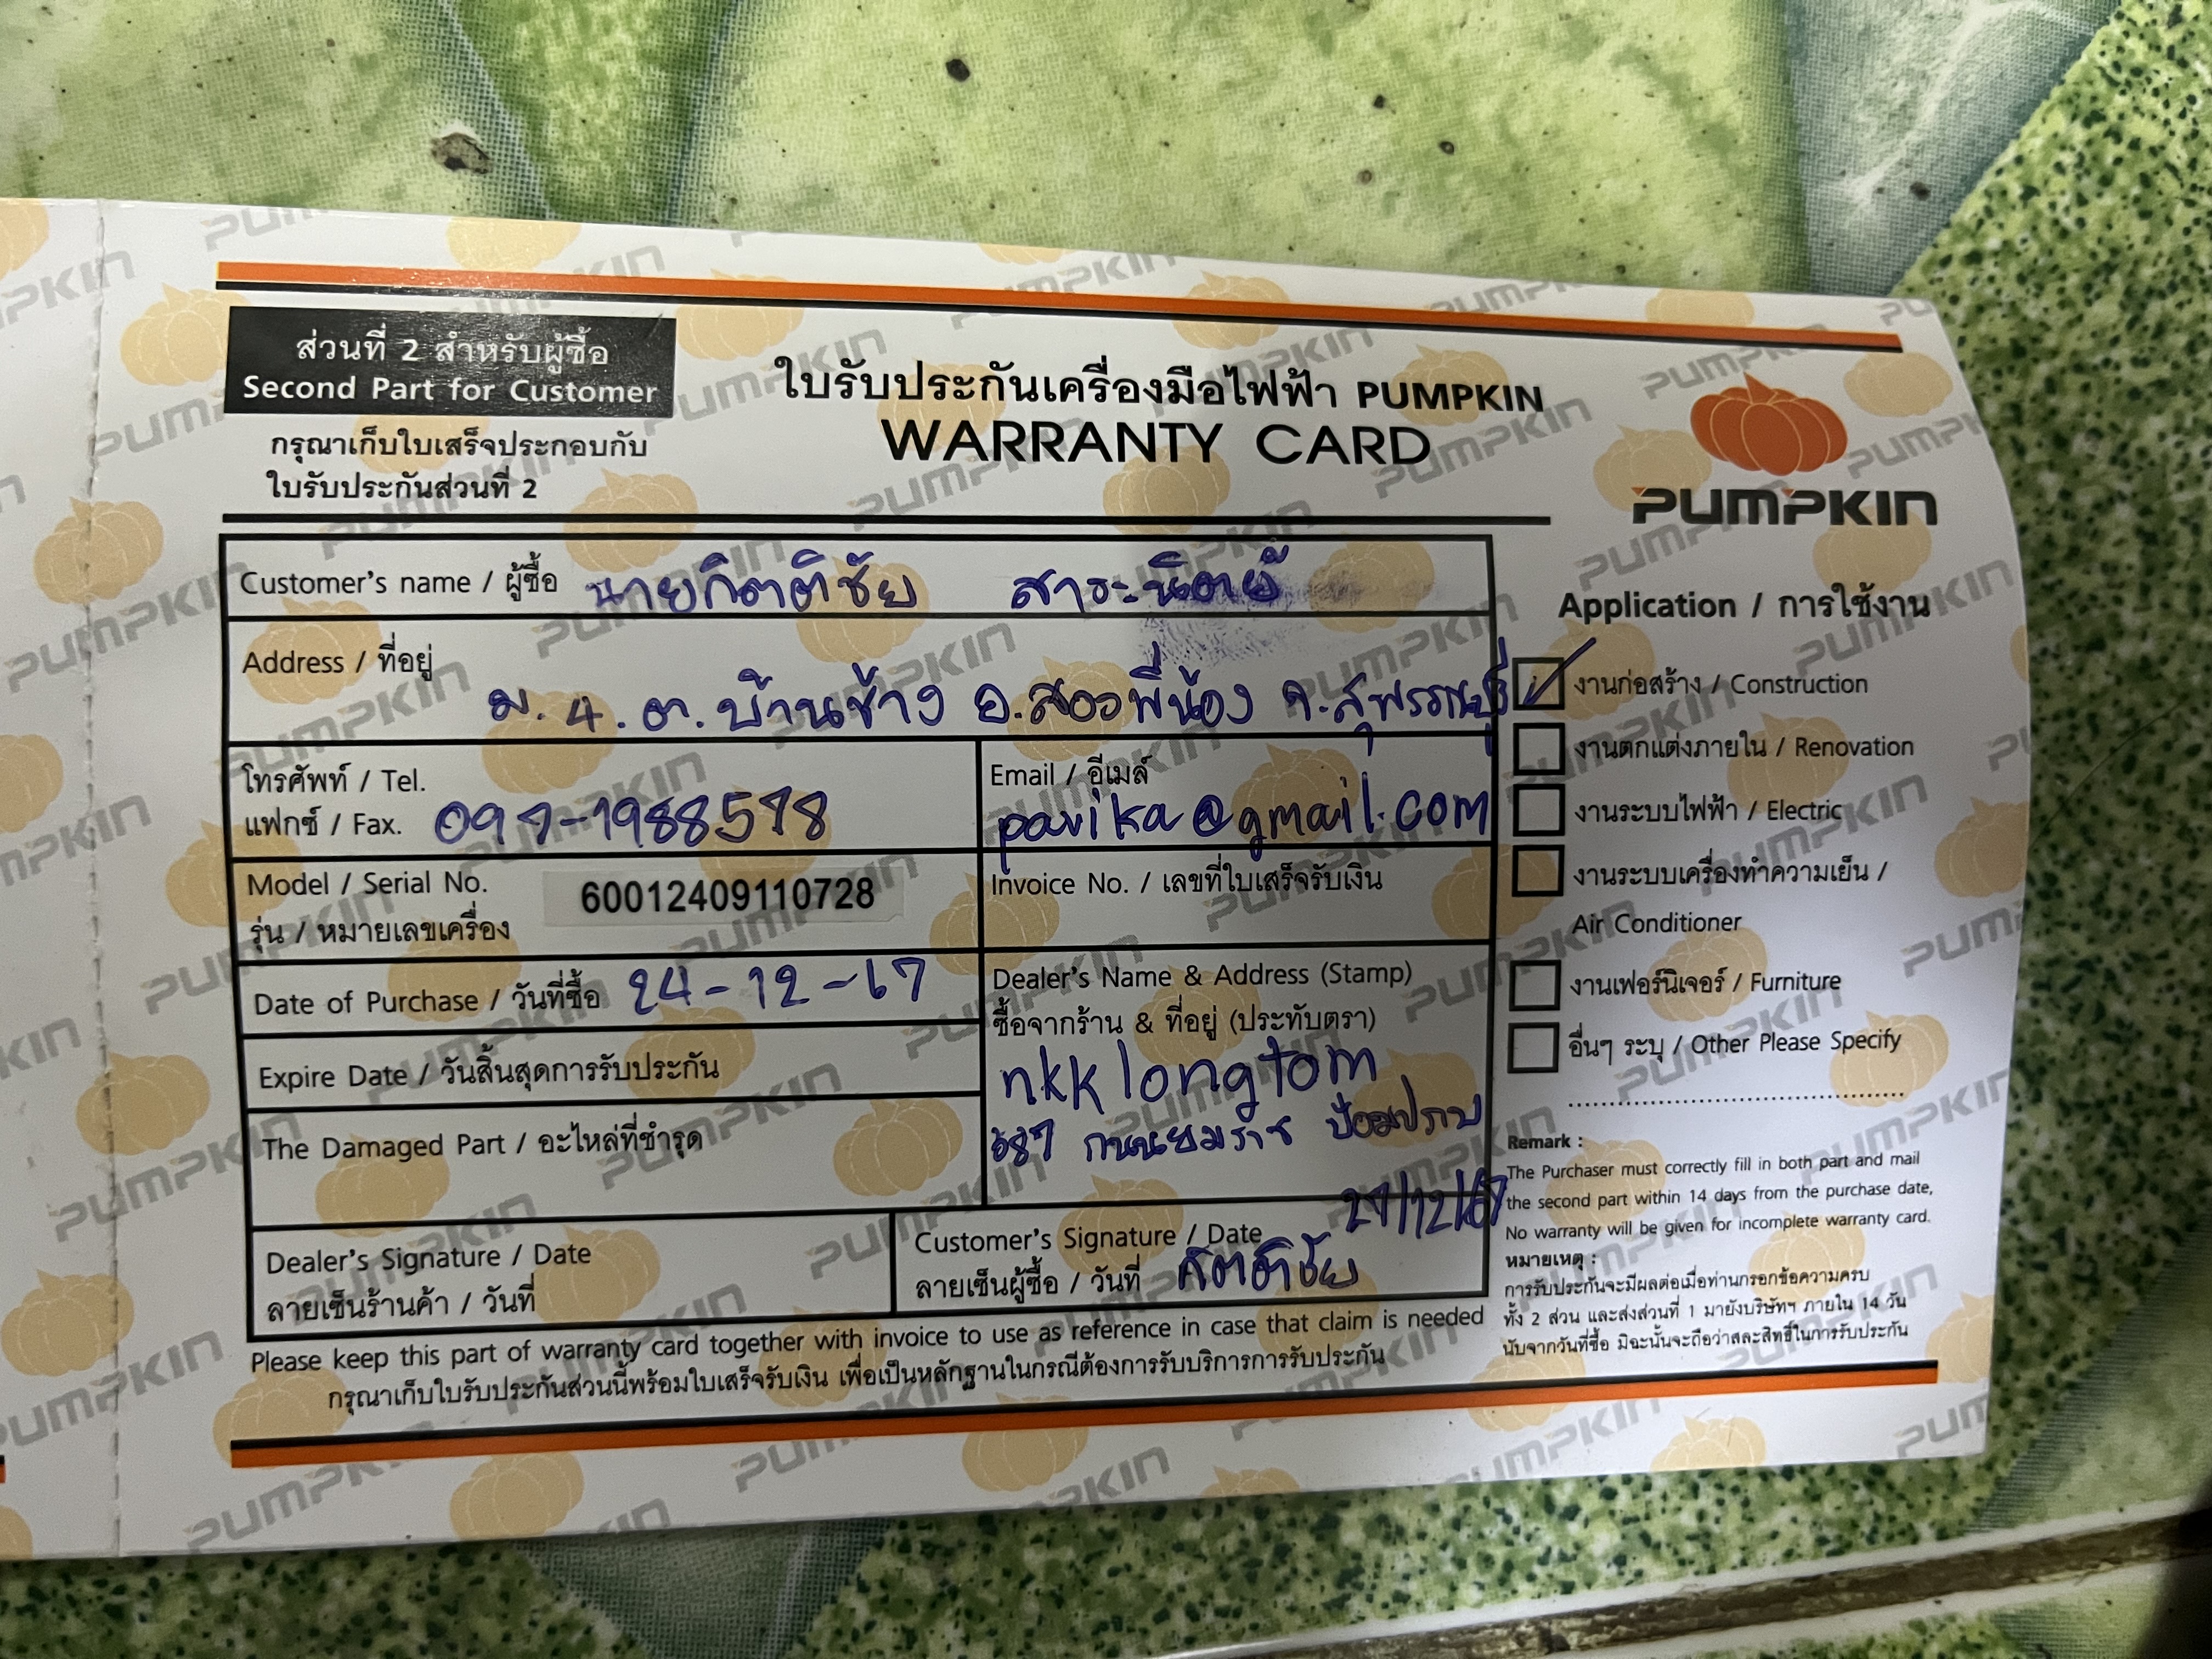 ส่วนที่ 2 สำหรับผู้ซื้อ
Second Part for Customer
กรุณาเก็บใบเสร็จประกอบกับ
ใบรับประกันส่วนที่ 2
ใบรับประกันเครื่องมือไฟฟ้า PUMPKIN
WARRANTY CARD
PUMPKIN
Customer's name / ผู้ซื้อ นายกิตติชัย สาระนิตย์
Address / ที่อยู่
ม.4.ต.บ้านช้าง อ.สองพี่น้อง จ.สุพรรณบุรี
โทรศัพท์ / Tel.
แฟกซ์ / Fax.
Email / อีเมล์
pavika@gmail.com
Model / Serial No. 60012409110728
รุ่น / หมายเลขเครื่อง
Invoice No. / เลขที่ใบเสร็จรับเงิน
Date of Purchase / วันที่ซื้อ 24-12-67
Expire Date / วันสิ้นสุดการรับประกัน
The Damaged Part / อะไหล่ที่ชำรุด
Dealer's Name & Address (Stamp)
ซื้อจากร้าน & ที่อยู่ (ประทับตรา)
nkklongtom
ป้อมปราบ
Dealer's Signature / Date
ลายเซ็นร้านค้า / วันที่
Customer's Signature / Date
ลายเซ็นผู้ซื้อ / วันที่ กิตติชัย
Please keep this part of warranty card together with invoice to use as reference in case that claim is needed
กรุณาเก็บใบรับประกันส่วนนี้พร้อมใบเสร็จรับเงิน เพื่อเป็นหลักฐานในกรณีต้องการรับบริการการรับประกัน
Application / การใช้งาน
งานก่อสร้าง / Construction
งานตกแต่งภายใน / Renovation
งานระบบไฟฟ้า / Electric
งานระบบเครื่องทำความเย็น /
Air Conditioner
งานเฟอร์นิเจอร์ / Furniture
อื่นๆ ระบุ / Other Please Specify
Remark :
The Purchaser must correctly fill in both part and mail
the second part within 14 days from the purchase date,
No warranty will be given for incomplete warranty card.
หมายเหตุ :
การรับประกันจะมีผลต่อเมื่อท่านกรอกข้อความครบ
ทั้ง 2 ส่วน และส่งส่วนที่ 1 มายังบริษัทฯ ภายใน 14 วัน
นับจากวันที่ซื้อ มิฉะนั้นจะถือว่าสละสิทธิ์ในการรับประกัน